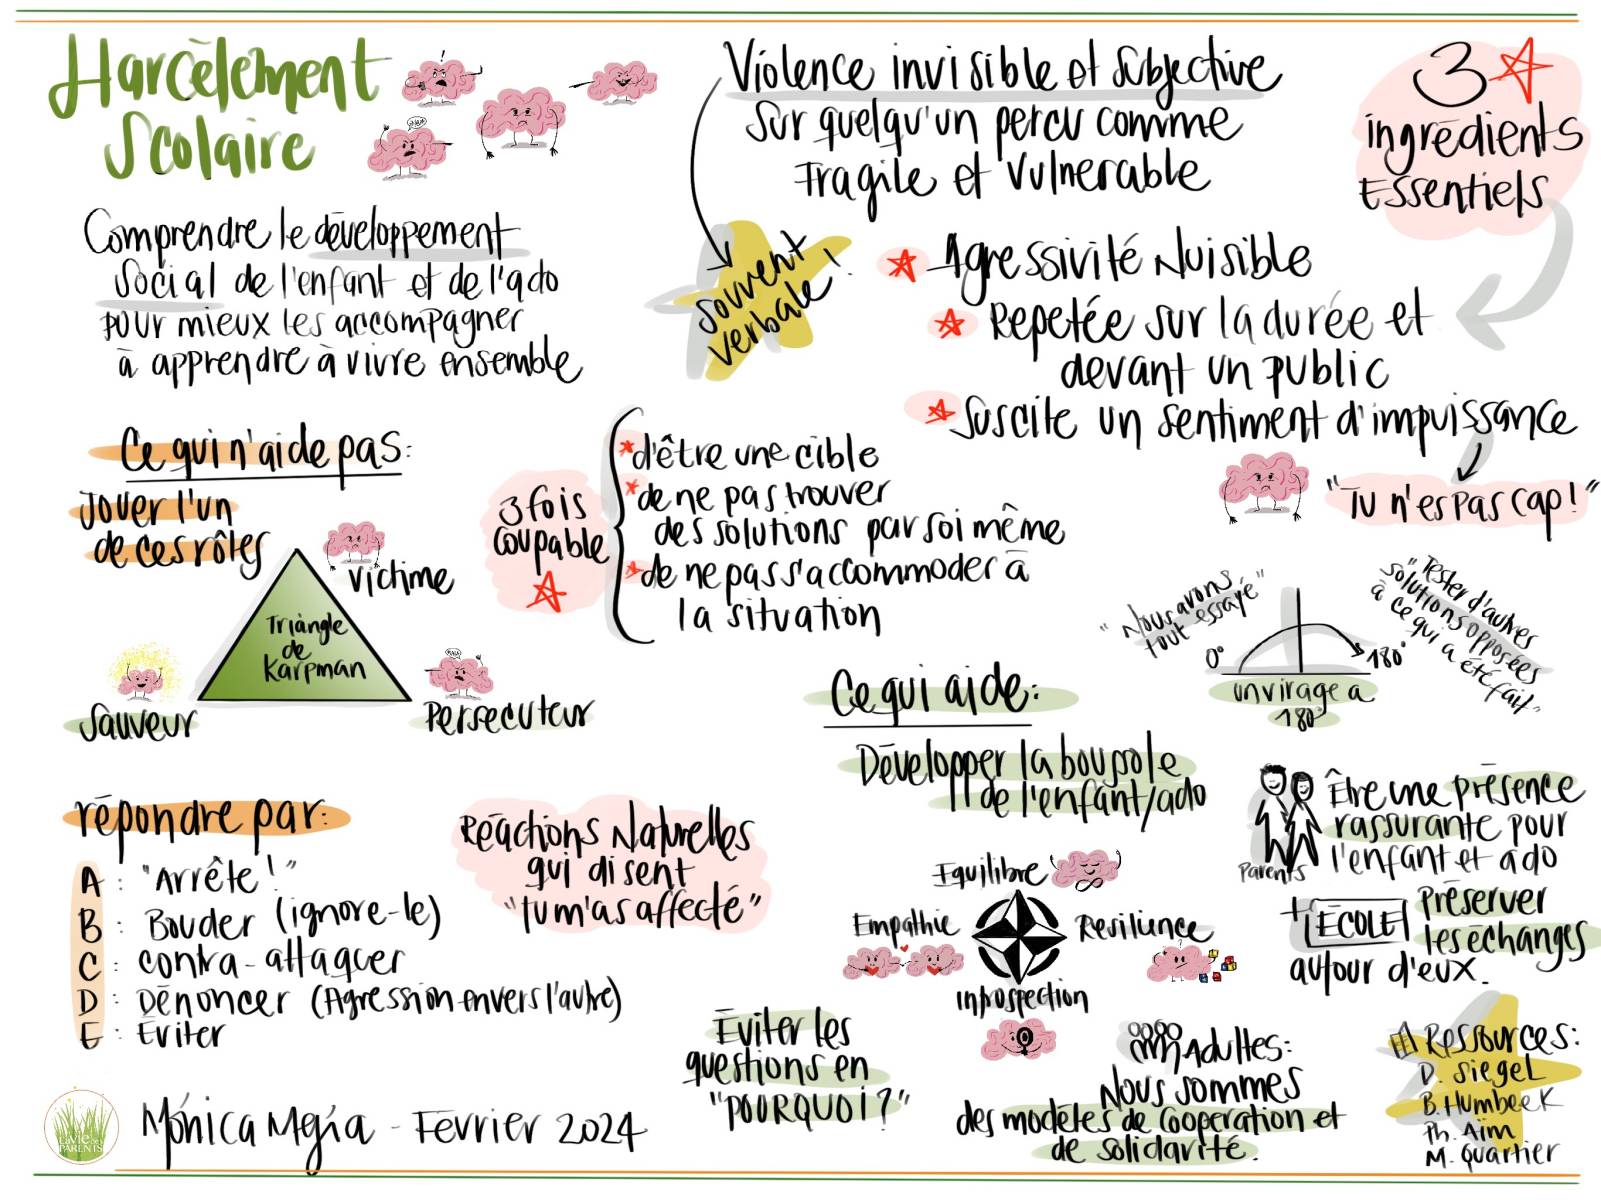 Harcèlement
Scolaire
Comprendre le développement
social de l'enfant et de l'ado
pour mieux les accompagner
à apprendre à vivre ensemble
Violence invisible et subjective
sur quelqu'un percu comme
Fragile et Vulnerable
souvent
verbale!
3
ingrédients
Essentiels
Agressivité Nuisible
Repetée sur la durée et
devant un public
Suscite un sentiment d'impuissance
"Tu n'es pas cap!"
Ce qui n'aide pas:
Jouer l'un
de ces rôles
Victime
Triangle
de
Karpman
Sauveur
Persecuteur
3 fois
coupable
d'être une cible
de ne pas trouver
des solutions par soi même
de ne pas s'accommoder à
la situation
"Nous avons
tout essayé"
"Tester d'autres
solutions opposées
à ce qui a été fait"
0°
180°
un virage a
180°
répondre par:
A : "Arrête!"
B : Bouder (ignore-le)
C : contra-attaquer
D : Dénoncer (Agression envers l'autre)
E : Eviter
Réactions Naturelles
qui disent
"tu m'as affecté"
Ce qui aide:
Développer la boussole
de l'enfant/ado
Equilibre
Empathie
Resilience
Introspection
Parents
Être une présence
rassurante pour
l'enfant et ado
+ ECOLE
Préserver
les échanges
autour d'eux.
Eviter les
questions en
"POURQUOI?"
Adultes:
Nous sommes
des modèles de Cooperation et
de solidarité.
Ressources:
D. Siegel
B. Humbeek
Ph. Aïm
M. Quartier
LaVie de
PARENTS
Mónica Mejía - Février 2024